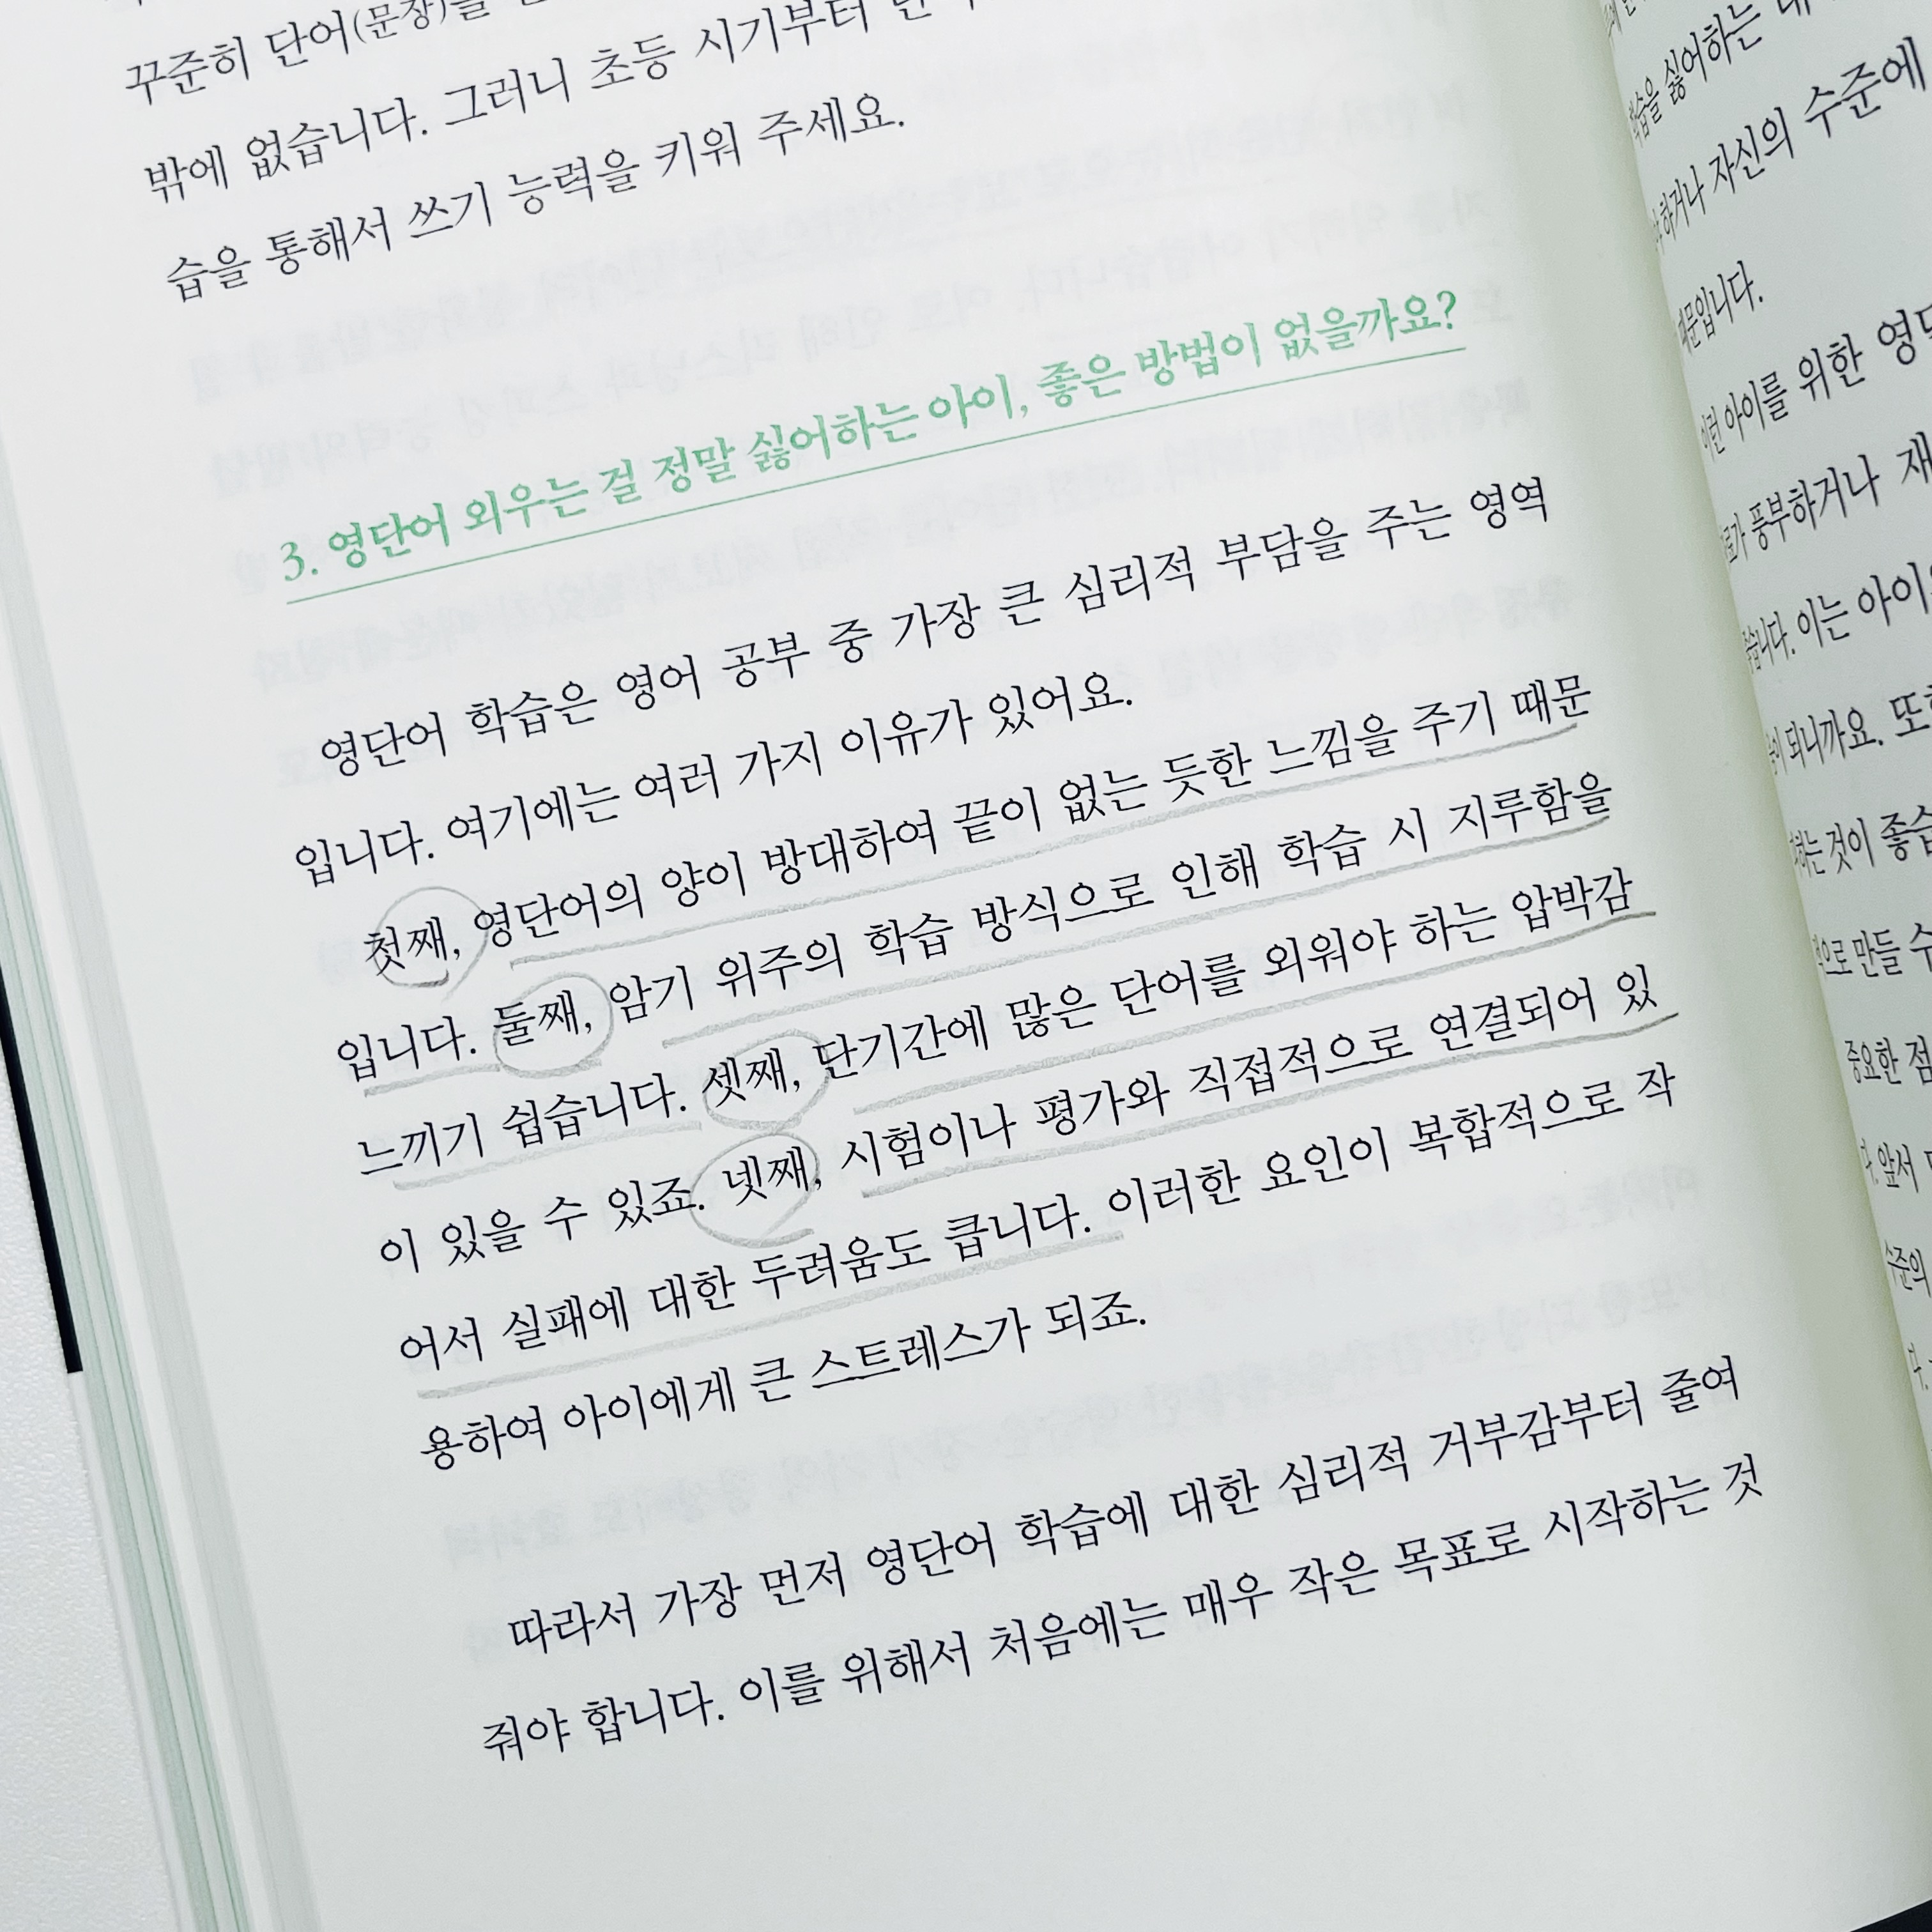 꾸준히 단어(문장)를
밖에 없습니다. 그러니 초등 시기부터
습을 통해서 쓰기 능력을 키워 주세요.
3. 영단어 외우는 걸 정말 싫어하는 아이, 좋은 방법이 없을까요?
영단어 학습은 영어 공부 중 가장 큰 심리적 부담을 주는 영역
입니다. 여기에는 여러 가지 이유가 있어요.
첫째, 영단어의 양이 방대하여 끝이 없는 듯한 느낌을 주기 때문
입니다. 둘째, 암기 위주의 학습 방식으로 인해 학습 시 지루함을
느끼기 쉽습니다. 셋째, 단기간에 많은 단어를 외워야 하는 압박감
이 있을 수 있죠. 넷째, 시험이나 평가와 직접적으로 연결되어 있
어서 실패에 대한 두려움도 큽니다. 이러한 요인이 복합적으로 작
용하여 아이에게 큰 스트레스가 되죠.
따라서 가장 먼저 영단어 학습에 대한 심리적 거부감부터 줄여
줘야 합니다. 이를 위해서 처음에는 매우 작은 목표로 시작하는 것
학습을 싫어하는
하거나 자신의 수준에
때문입니다.
이런 아이를 위한
풍부하거나
이는
되니까요. 또한
하는 것이
적으로 만들
중요한
앞서
수준의